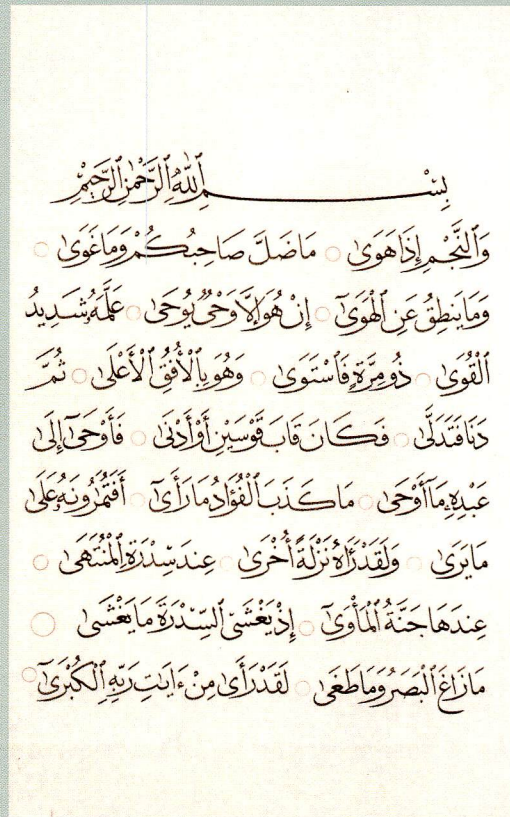 بِسْمِ ٱللَّهِ ٱلرَّحْمَٰنِ ٱلرَّحِيمِ
وَٱلنَّجْمِ إِذَا هَوَىٰ ○ مَا ضَلَّ صَاحِبُكُمْ وَمَا غَوَىٰ ○
وَمَا يَنطِقُ عَنِ ٱلْهَوَىٰٓ ○ إِنْ هُوَ إِلَّا وَحْىٌ يُوحَىٰ ○ عَلَّمَهُۥ شَدِيدُ
ٱلْقُوَىٰ ○ ذُو مِرَّةٍ فَٱسْتَوَىٰ ○ وَهُوَ بِٱلْأُفُقِ ٱلْأَعْلَىٰ ○ ثُمَّ
دَنَا فَتَدَلَّىٰ ○ فَكَانَ قَابَ قَوْسَيْنِ أَوْ أَدْنَىٰ ○ فَأَوْحَىٰٓ إِلَىٰ
عَبْدِهِۦ مَآ أَوْحَىٰ ○ مَا كَذَبَ ٱلْفُؤَادُ مَا رَأَىٰٓ ○ أَفَتُمَٰرُونَهُۥ عَلَىٰ
مَا يَرَىٰ ○ وَلَقَدْ رَءَاهُ نَزْلَةً أُخْرَىٰ ○ عِندَ سِدْرَةِ ٱلْمُنتَهَىٰ ○
عِندَهَا جَنَّةُ ٱلْمَأْوَىٰٓ ○ إِذْ يَغْشَى ٱلسِّدْرَةَ مَا يَغْشَىٰ ○
مَا زَاغَ ٱلْبَصَرُ وَمَا طَغَىٰ ○ لَقَدْ رَأَىٰ مِنْ ءَايَٰتِ رَبِّهِ ٱلْكُبْرَىٰٓ ○